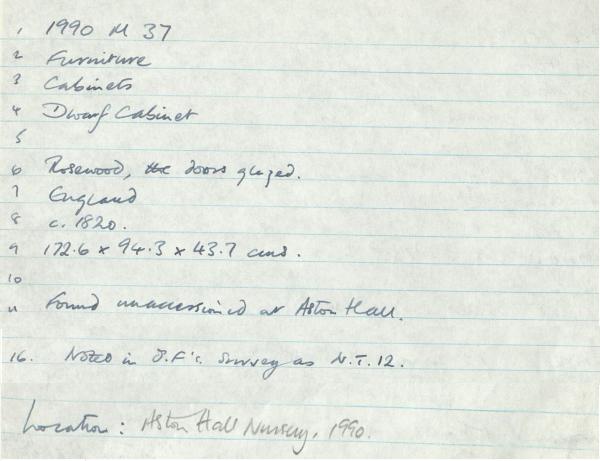 1 1990 M 37
2 Furniture
3 Cabinets
4 Dwarf Cabinet
5
6 Rosewood, the doors glazed.
7 England
8 c. 1820.
9 172.6 x 94.3 x 43.7 cms.
10
11 Found unaccessioned at Aston Hall.
16. Noted in J.F's. survey as N.T. 12.
Location: Aston Hall Nursery, 1990.